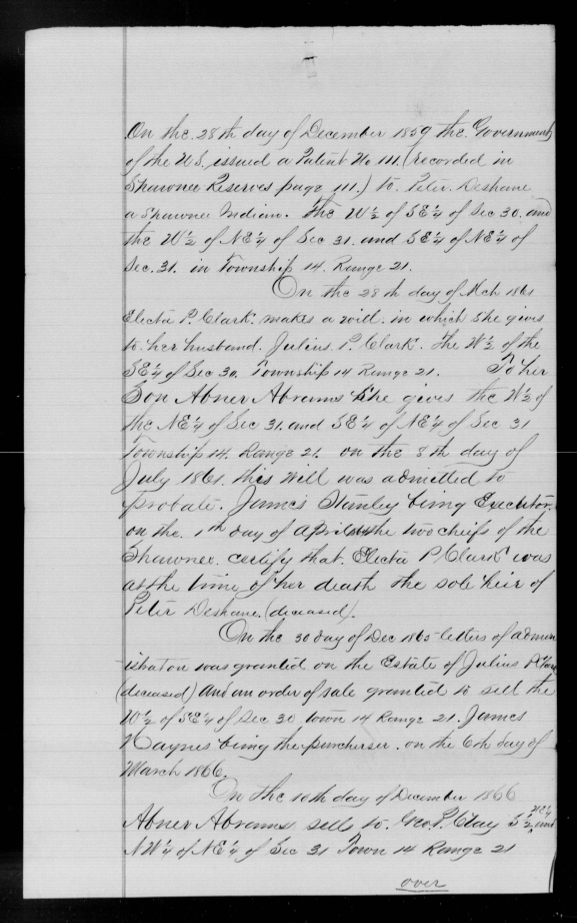 On the 28th day of December 1859 the Government
of the U.S. issued a Patent No 111. (recorded in
Shawnee Reserves page 111.) to Peter Deshane
a Shawnee Indian. The W½ of SE¼ of Sec 30. and
the W½ of NE¼ of Sec 31. and SE¼ of NE¼ of
Sec. 31. in Township 14. Range 21.
On the 28th day of Mch 1861
Electa P. Clark. makes a will. in which she gives
to her husband. Julius P. Clark. The W½ of the
SE¼ of Sec 30. Township 14 Range 21. To her
Son Abner Abrams She gives the W½ of
the NE¼ of Sec 31. and SE¼ of NE¼ of Sec 31
Township 14. Range 21. on the 8th day of
July 1861. this will was admitted to
probate. James Stanley being Executor.
on the. 1th day of April the two cheifs of the
Shawnee. certify that. Electa P Clark was
at the time of her death the sole heir of
Peter Deshane. (deceased).
On the 30 day of Dec 1865 letters of admin
istration was granted on the Estate of Julius
(deceased) and an order of sale granted to sell the
W½ of SE¼ of Sec 30. town 14 Range 21. James
Haynes being the purcherser. on the 6th day of
March 1866.
On the 10th day of December 1866
Abner Abrams sells to. Geo. P. Clay S½ NE¼ and
NW¼ of NE¼ of Sec 31 Town 14 Range 21
over